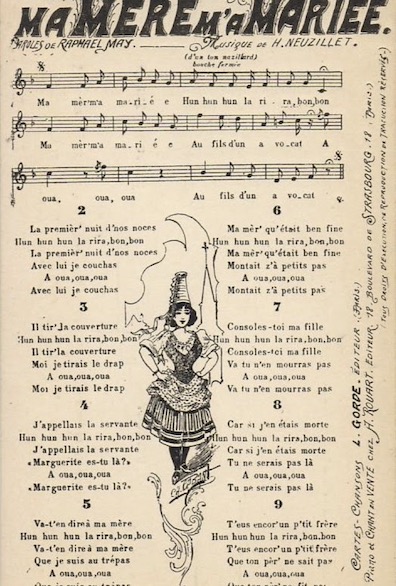 MA MÈRE M'A MARIÉE.
PAROLES DE RAPHAEL MAY.
MUSIQUE DE H. NEUZILLET.
(d'un ton nazillard)
bouche fermée
Ma mèr' m'a ma_ri_é e Hun hun hun la ri _ ra, bon, bon
Ma mèr' m'a ma_ri_é e Au fils d'un a vo_cat A
oua, oua, oua Au fils d'un a vo_cat
2
La premièr' nuit d'nos noces
Hun hun hun la rira, bon, bon
La premièr' nuit d'nos noces
Avec lui je couchas
A oua, oua, oua
Avec lui je couchas
3
Il tir' la couverture
Hun hun hun la rira, bon, bon
Il tir' la couverture
Moi je tirais le drap
A oua, oua, oua
Moi je tirais le drap
4
J'appellais la servante
Hun hun hun la rira, bon, bon
J'appellais la servante
«Marguerite es-tu là?»
A oua, oua, oua
«Marguerite es-tu là?»
5
Va-t'en dire à ma mère
Hun hun hun la rira, bon, bon
Va-t'en dire à ma mère
Que je suis au trépas
A oua, oua, oua
Que je suis au trépas
6
Ma mèr' qu'était ben fine
Hun hun hun la rira, bon, bon
Ma mèr' qu'était ben fine
Montait z'à petits pas
A oua, oua, oua
Montait z'à petits pas
7
Consoles-toi ma fille
Hun hun hun la rira, bon, bon
Consoles-toi ma fille
Va tu n'en mourras pas
A oua, oua, oua
Va tu n'en mourras pas
8
Car si j'en étais morte
Hun hun hun la rira, bon, bon
Car si j'en étais morte
Tu ne serais pas là
A oua, oua, oua
Tu ne serais pas là
9
T'eus encor' un p'tit frère
Hun hun hun la rira, bon, bon
T'eus encor' un p'tit frère
Que ton pèr' ne sait pas
A oua, oua, oua
CARTES-CHANSONS L. GORDE. ÉDITEUR. (PARIS.)
PIANO ET CHANT EN VENTE CHEZ A. ROUART, EDITEUR, 18 BOULEVARD DE STRASBOURG, 18 (PARIS.)
(TOUS DROITS D'EXÉCUTION, DE REPRODUCTION, DE TRADUCTION RÉSERVÉS.)